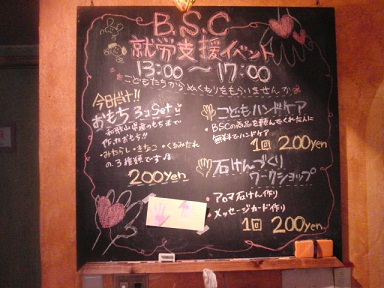 B.S.C
就労支援イベント
13:00～17:00
こどもたちからぬくもりをもらいませんか
今日だけ!!
おもち 3コSet
和歌山県産のもち米で
作ったおもち!!
・みたらし・きなこ・くるみだれ
の3種類です♪
200yen
こどもハンドケア
・BSCの商品を購入してくれた人に
無料でハンドケア
1回 200yen
石けんづくり
ワークショップ
・アロマ石けん作り
・メッセージカード作り
1回 200yen